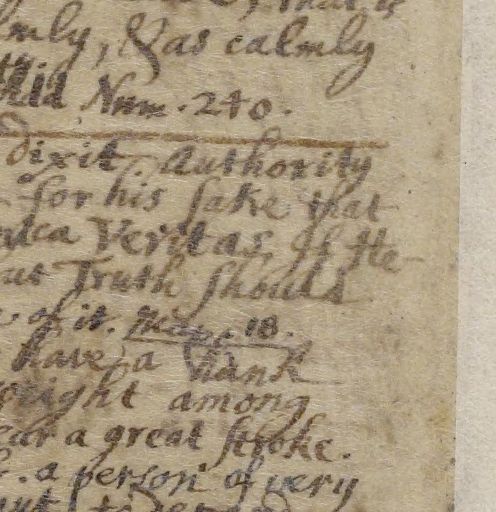 that is
mly, & as calmly
did, Num. 240.
dixit. Authority
for his sake that
Veritas, if He-
ut Truth should
of it. 18.
have a Hank
weight among
ear a great stroke.
a person of very